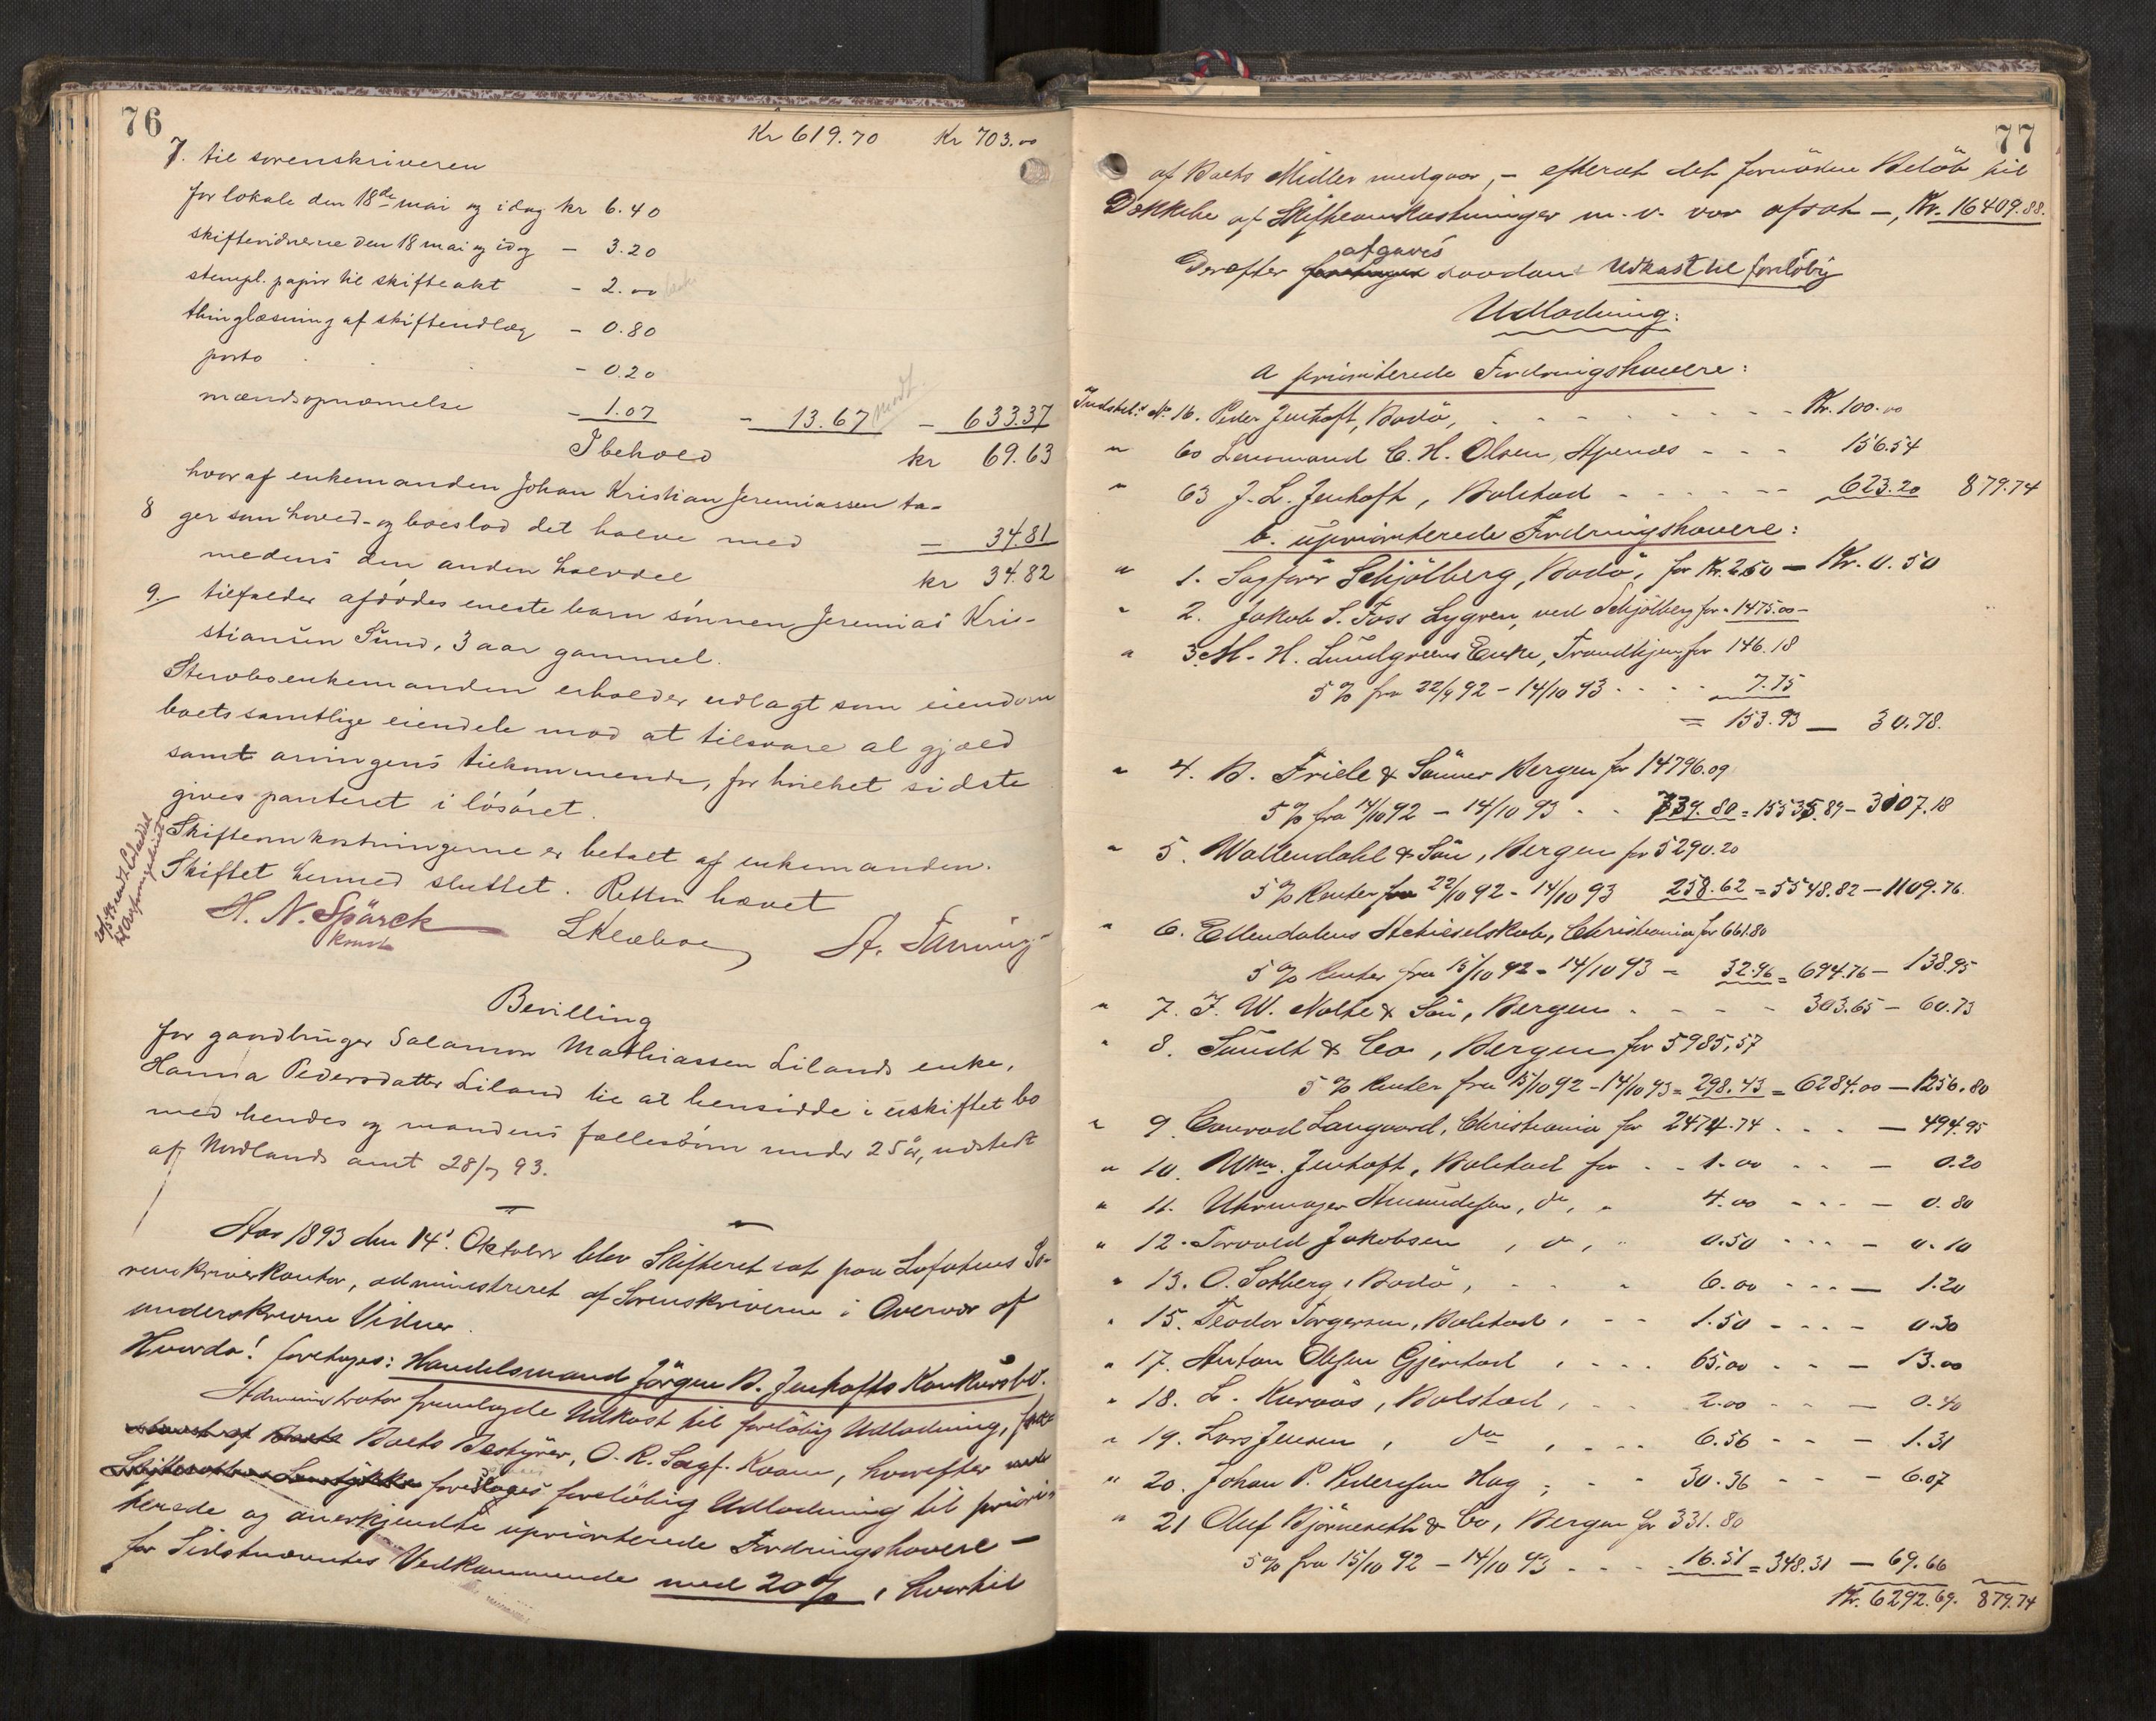 76
Kr 619.70 Kr 703.00
7. til sorenskriveren
for lokale den 18de mai og idag kr 6.40
skiftevidnerne den 18 mai og idag - 3.20
stempl. papir til skifteakt - 2.00
thinglæsning af skifteudlæg - 0.80
porto - 0.20
mændsopnævnelse - 1.07 - 13.67 - 633.37
I behold kr 69.63
hvoraf enkemanden Johan Kristian Jeremiassen ta-
8 ger som hoved- og boeslod det halve med — 34.81
medens den anden halvdel kr 34.82
9. tilfalder afdødes eneste barn sønnen Jeremias Kris-
tiansen Sund, 3 aar gammel.
Stervboenkemanden erholder udlagt som eiendom
boets samtlige eiendele mod at tilsvare al gjæld
samt arvingens tilkommende, for hvilket sidste
gives panteret i løsøret.
Skifteomkostningerne er betalt af enkemanden.
Skiftet hermed sluttet. Retten hævet
H. N. Spärck
konst
LKlæboe
A. Tanning
Bevilling
for gaardbruger Salamon Mathiassen Lilands enke,
Hanna Pedersdatter Liland til at hensidde i uskiftet bo
med hendes og mandens fællesbørn under 25 år, udstedt
af Nordlands amt 28/7 93.
Aar 1893 den 14. Oktober blev Skifteret sat paa Lofotens So-
renskriverkontor, administreret af Sorenskriveren i Overvær af
underskrevne Vidner.
Hvorda! foretages: Handelsmand Jörgen B. Jenhofts Konkursbo.
Administrator fremlagde Udkast til foreløbig Udlodning,
Boets Bestyrer, O. R. Sagf. Kvam, hvorefter
foreløbig Udlodning til priori-
terede og anerkjendte upriorterede Fordringshavere —
for Sidstnævntes Vedkommende med 20%, hvortil
77
af Boets Midler medgaar, — efterat det fornödne Belöb til
Dækkelse af Skifteomkostninger m. v. var afsat —, Kr. 16409.88.
afgaves
Derefter saadant Udkast til foreløbig
Udlodning:
a prioriterede Fordringshavere:
Indstil. No 16. Peder Jenhoft, Bodö, Kr. 100.00
" 60 Lensmand C. H. Olsen, 156.54
" 63 J. L. Jenhoft, Bolstad 623.20 879.74
b. upriorterede Fordringshavere:
" 1. Sagförer Schjölberg, Bodö, for Kr. 2.50 — Kr. 0.50
" 2. Jakob S. Foss Lygren, ved Schjölberg for " 1475.00 —
" 3. M. H. Lundgreens Enke, Trondhjem for 146.18
5% fra 22/9 92 - 14/10 93 7.75
= 153.93 — 30.78.
" 4. B. Friele & Sönner Bergen for 14796.09
5% fra 14/10 92 - 14/10 93 739.80 = 15535.89 - 3107.18
" 5. Wallendahl & Sön, Bergen for 5290.20
5% Renter fra 22/10 92 - 14/10 93 258.62 = 5548.82 — 1109.76.
" 6. Ellendalens Aktieselskab, Christiania for 661.80
5% Renter fra 15/10 92 - 14/10 93 - 32.96 = 694.76 - 138.95
" 7. J. W. Nolte & Sön, Bergen 303.65 - 60.73
" 8. Sundt & Co, Bergen for 5985,57
5% Renter fra 15/10 92 - 14/10 93 = 298.43 = 6284.00 — 1256.80
" 9. Conrad Langaard, Christiania for 2474.74 — 494.95
" 10. Wm. Jenhoft, Bolstad for 1.00 — 0.20
" 11. Uhrmager Amundsen, do, " 4.00 — 0.80
" 12. Torvald Jakobsen, do, " 0.50 — 0.10
" 13. O. Solberg, Bodö, " 6.00 — 1.20
" 15. Teodor Torgersen, Bolstad, 1.50 — 0.30
" 17. Anton Olsen Gjerstad, 65.00 — 13.00
" 18. L. Kuraas, Bolstad, 2.00 — 0.40
" 19. Lars Jensen, do, 6.56 — 1.31
" 20. Johan P. Pedersen Hag, 30.36 — 6.07
" 21 Oluf Björneseth & Co, Bergen for 331.80
5% fra 15/10 92 - 14/10 93 16.51 = 348.31 — 69.66
Kr. 6292.69. 879.74